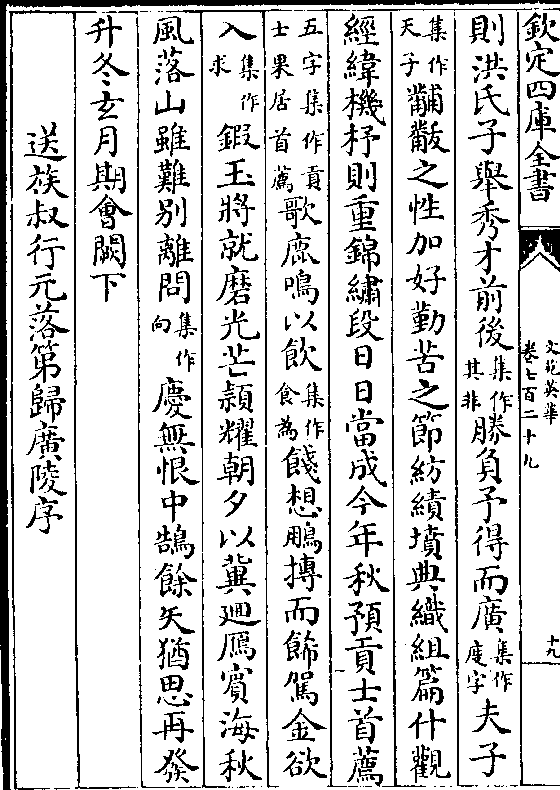 欽定四庫全書
文苑英華
卷七百二十九
十九
則洪氏子舉秀才前後集作其非勝負予得而廣集作度字夫子
集作天子黼黻之性加好勤苦之節紡績墳典織組篇什觀
經緯機杼則重錦繡段日日當成今年秋預貢士首薦
五字集作貢士果居首薦歌鹿鳴以飲集作食為餞想鵬摶而飾駕金欲
入集作求鍜玉將就磨光芒穎耀朝夕以冀廻鴈賓海秋
風落山雖難别離問集作向慶無恨中鵠餘矢猶思再發
升冬玄月期會闕下
送族叔行元落第歸廣陵序